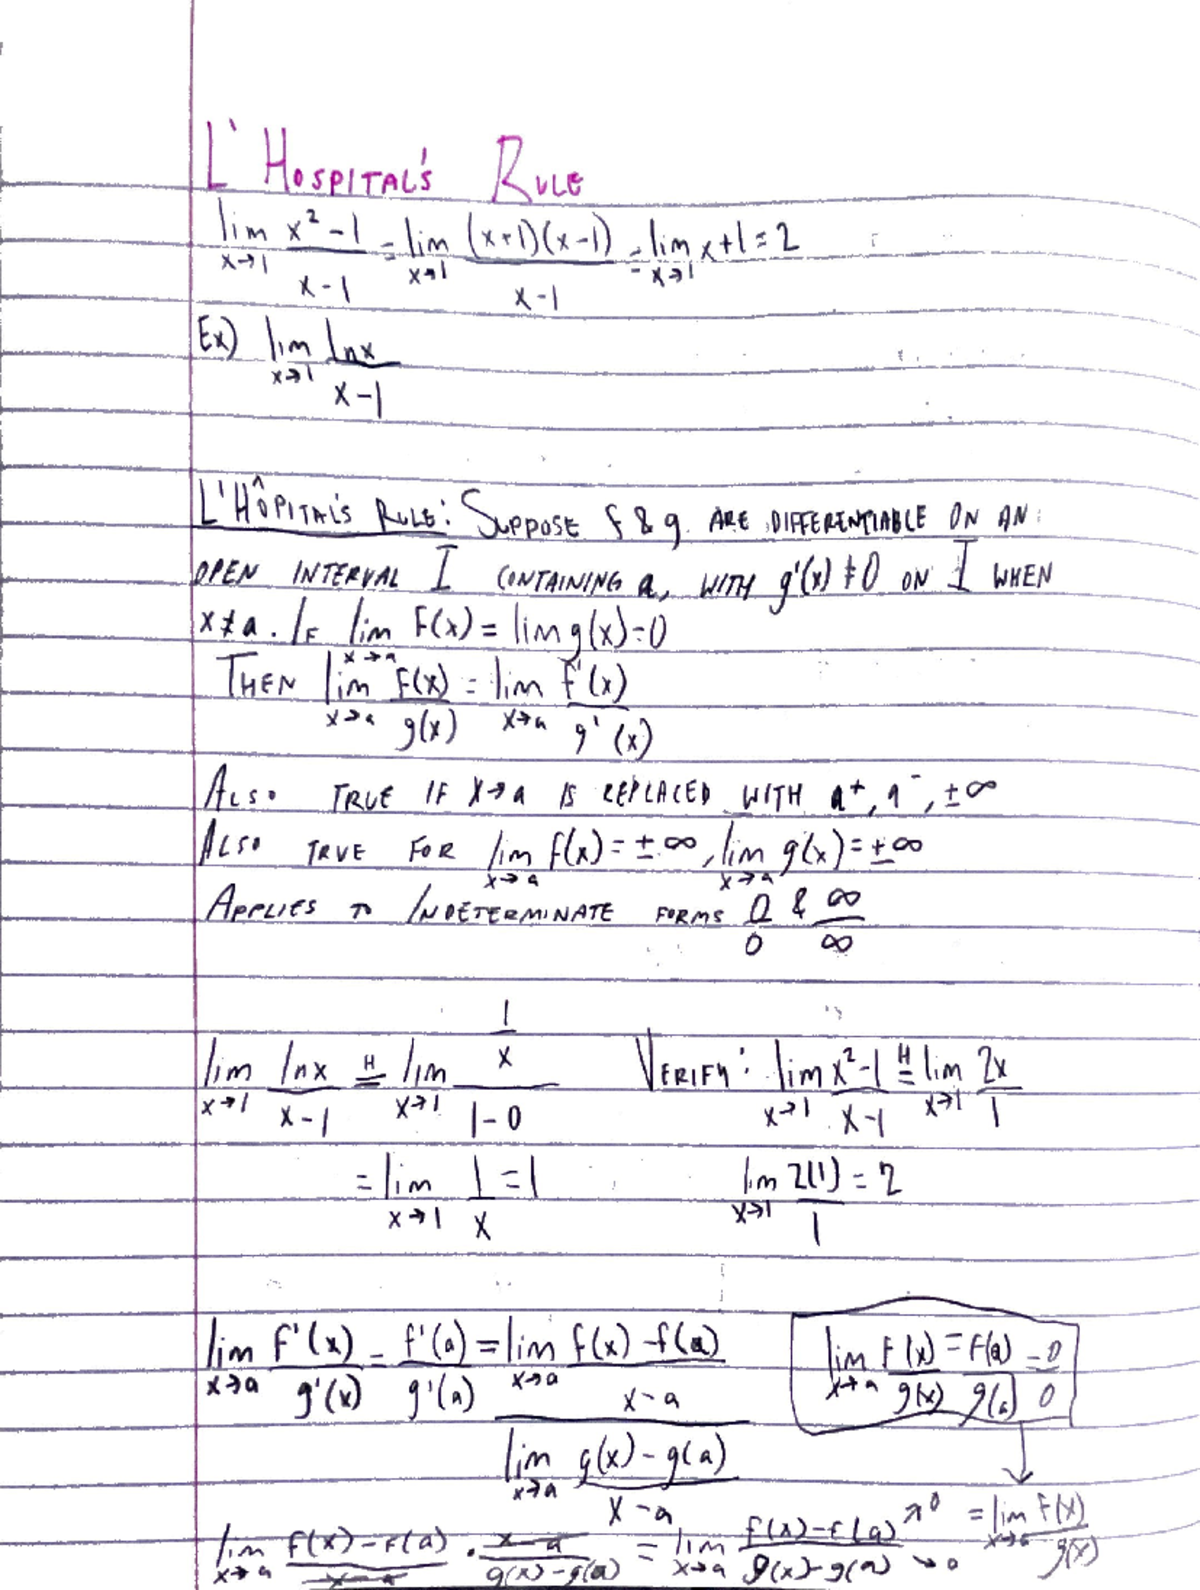 L'Hospital's Rule
lim x→1 (x² - 1)/(x - 1) = lim x→1 (x+1)(x-1)/(x-1) = lim x→1 x+1 = 2
Ex) lim x→1 lnx/(x-1)
L'Hôpital's Rule: Suppose f & g are differentiable on an
open interval I containing a, with g'(x) ≠ 0 on I when
x ≠ a. If lim x→a F(x) = lim g(x) = 0
Then lim x→a F(x)/g(x) = lim x→a f'(x)/g'(x)
Also true if x→a is replaced with a⁺, a⁻, ±∞
Also true for lim x→a f(x) = ±∞, lim x→a g(x) = ±∞
Applies to Indeterminate forms 0/0 & ∞/∞
lim x→1 lnx/(x-1) =ᴴ lim x→1 (1/x)/(1-0)
Verify: lim x→1 (x²-1)/(x-1) =ᴴ lim x→1 2x/1
= lim x→1 1/x = 1
lim x→1 2(1)/1 = 2
lim x→a F'(x)/g'(x) = f'(a)/g'(a) = (lim x→a (f(x)-f(a))/(x-a))/(lim x→a (g(x)-g(a))/(x-a))
lim x→a F(x)/g(x) = F(a)/g(a) = 0/0
lim x→a (f(x)-f(a))/(x-a) · (x-a)/(g(x)-g(a)) = lim x→a (f(x)-f(a))/(g(x)-g(a)) ↗0 ↘0 = lim x→a F(x)/g(x)